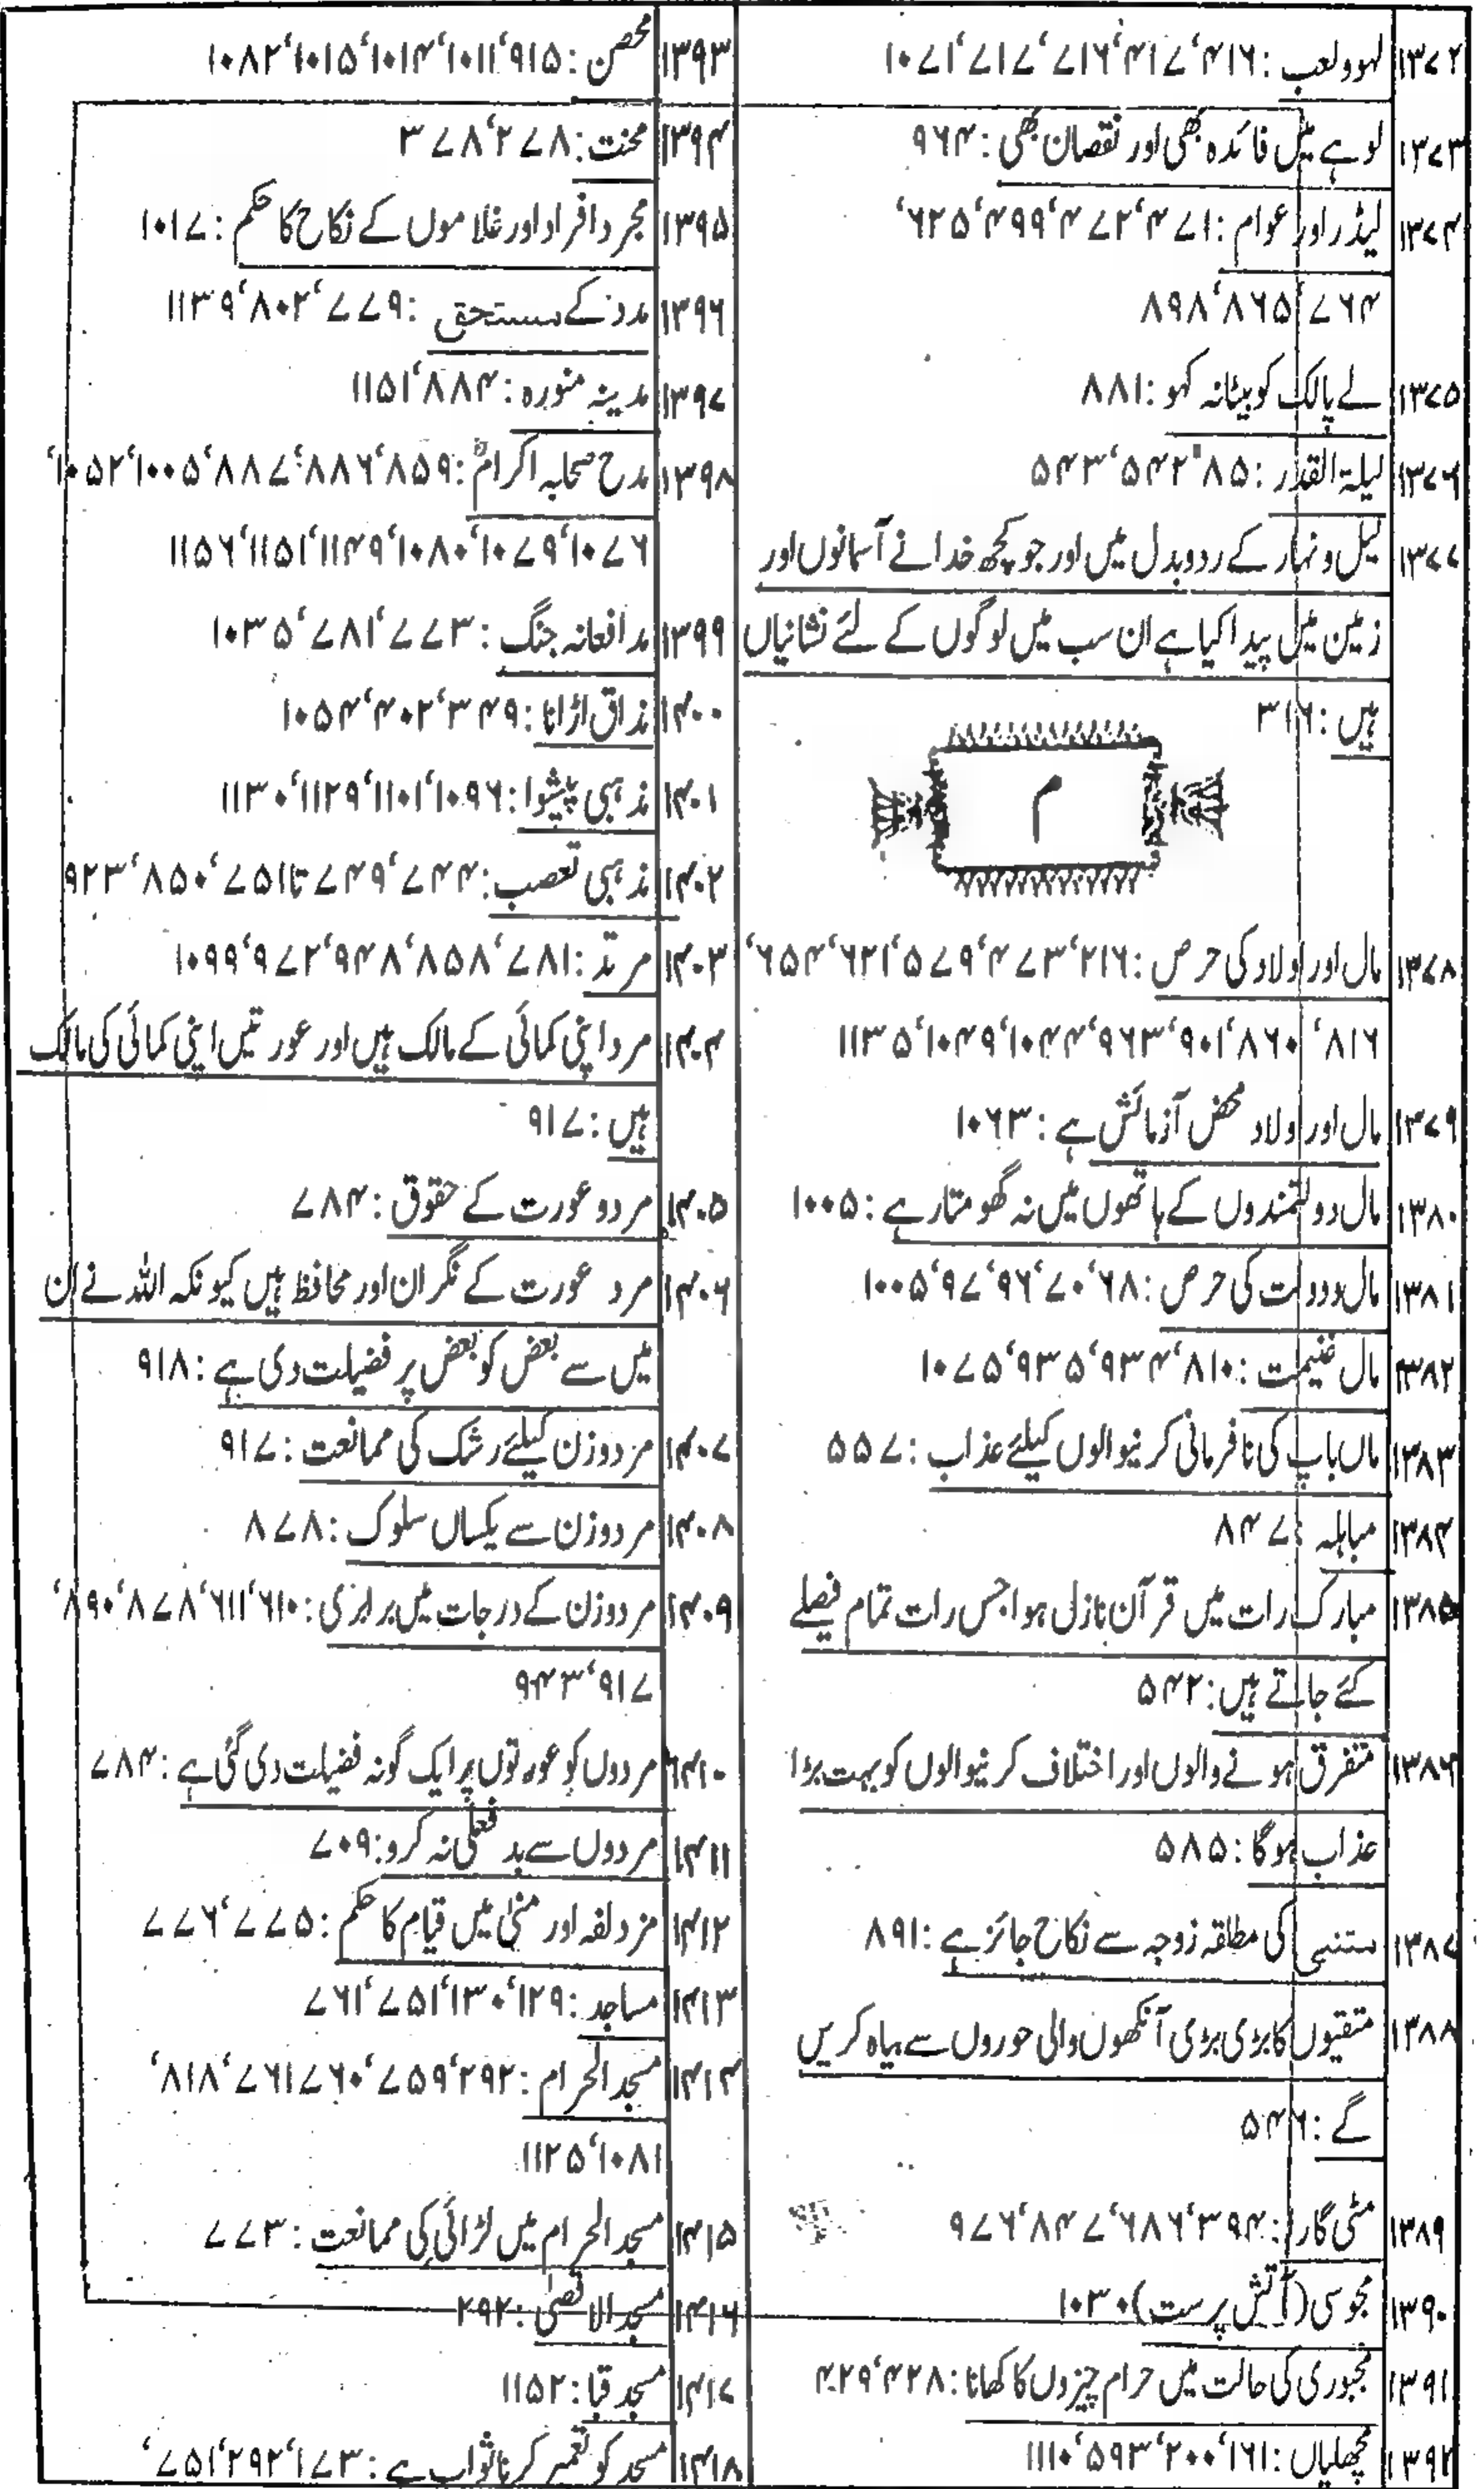 ۱۳۷۲ لہوولعب : ۴۱۶‘۴۱۷‘۷۱۶‘۷۱۷‘۱۰۷۱
۱۳۷۳ لوہے میں فائدہ بھی اور نقصان بھی : ۹۶۴
۱۳۷۴ لیڈر اور عوام : ۴۷۱‘۴۷۲‘۴۹۹‘۶۲۵‘
۷۶۴‘۸۶۵‘۸۹۸
۱۳۷۵ لے پالک کو بیٹا نہ کہو : ۸۸۱
۱۳۷۶ لیلۃ القدر : ۸۵‘۵۴۲‘۵۴۳
۱۳۷۷ لیل و نہار کے ردوبدل میں اور جو کچھ خدا نے آسمانوں اور
زمین میں پیدا کیا ہے ان سب میں لوگوں کے لئے نشانیاں
ہیں : ۳۱۶
م
۱۳۷۸ مال اور اولاد کی حرص : ۲۱۶‘۴۷۳‘۵۷۹‘۶۲۱‘۶۵۴‘
۸۱۶‘۸۶۰‘۹۰۱‘۹۶۳‘۱۰۴۴‘۱۰۴۹‘۱۱۳۵
۱۳۷۹ مال اور اولاد محض آزمائش ہے : ۱۰۶۳
۱۳۸۰ مال دولتمندوں کے ہاتھوں میں نہ گھومتا رہے : ۱۰۰۵
۱۳۸۱ مال ودولت کی حرص : ۶۸‘۷۰‘۹۶‘۹۷‘۱۰۰۵
۱۳۸۲ مال غنیمت : ۸۱۰‘۹۳۴‘۹۳۵‘۱۰۷۵
۱۳۸۳ ماں باپ کی نافرمانی کرنیوالوں کیلئے عذاب : ۵۵۷
۱۳۸۴ مباہلہ : ۸۴۷
۱۳۸۵ مبارک رات میں قرآن نازل ہوا جس رات تمام فیصلے
کئے جاتے ہیں : ۵۴۲
۱۳۸۶ متفرق ہونے والوں اور اختلاف کرنیوالوں کو بہت بڑا
عذاب ہوگا : ۵۸۵
۱۳۸۷ متبنی کی مطلقہ زوجہ سے نکاح جائز ہے : ۸۹۱
۱۳۸۸ متقیوں کا بڑی بڑی آنکھوں والی حوروں سے بیاہ کریں
گے : ۵۴۶
۱۳۸۹ مٹی گارا : ۳۹۴‘۶۸۶‘۸۴۷‘۹۷۶
۱۳۹۰ مجوسی (آتش پرست) ۱۰۳۰
۱۳۹۱ مجبوری کی حالت میں حرام چیزوں کا کھانا : ۴۲۸‘۴۲۹
۱۳۹۲ مچھلیاں : ۱۶۱‘۲۰۰‘۵۹۳‘۱۱۱۰
۱۳۹۳ محصن : ۹۱۵‘۱۰۱۱‘۱۰۱۴‘۱۰۱۵‘۱۰۸۲
۱۳۹۴ محنت : ۲۷۸‘۳۷۸
۱۳۹۵ مجرد افراد اور غلاموں کے نکاح کا حکم : ۱۰۱۷
۱۳۹۶ مدد کے مستحق : ۷۷۹‘۸۰۲‘۱۱۳۹
۱۳۹۷ مدینہ منورہ : ۸۸۴‘۱۱۵۱
۱۳۹۸ مدح صحابہ اکرامؓ : ۸۵۹‘۸۸۶‘۸۸۷‘۱۰۰۵‘۱۰۵۲‘
۱۰۷۶‘۱۰۷۹‘۱۰۸۰‘۱۱۴۹‘۱۱۵۱‘۱۱۵۶
۱۳۹۹ مدافعانہ جنگ : ۷۷۳‘۷۸۱‘۱۰۳۵
۱۴۰۰ مذاق اڑانا : ۳۴۹‘۴۰۲‘۱۰۵۴
۱۴۰۱ مذہبی پیشوا : ۱۰۹۶‘۱۱۰۱‘۱۱۲۹‘۱۱۳۰
۱۴۰۲ مذہبی تعصب : ۷۴۴‘۷۴۹ تا ۷۵۱‘۸۵۰‘۹۲۳
۱۴۰۳ مرتد : ۷۸۱‘۸۵۸‘۹۴۸‘۹۷۲‘۱۰۹۹
۱۴۰۴ مرد اپنی کمائی کے مالک ہیں اور عورتیں اپنی کمائی کی مالک
ہیں : ۹۱۷
۱۴۰۵ مردوعورت کے حقوق : ۷۸۴
۱۴۰۶ مرد عورت کے نگران اور محافظ ہیں کیونکہ اللہ نے ان
میں سے بعض کو بعض پر فضیلت دی ہے : ۹۱۸
۱۴۰۷ مردوزن کیلئے رشک کی ممانعت : ۹۱۷
۱۴۰۸ مردوزن سے یکساں سلوک : ۸۷۸
۱۴۰۹ مردوزن کے درجات میں برابری : ۶۱۰‘۶۱۱‘۸۷۸‘۸۹۰‘
۹۱۷‘۹۴۳
۱۴۱۰ مردوں کو عورتوں پر ایک گونہ فضیلت دی گئی ہے : ۷۸۴
۱۴۱۱ مردوں سے بدفعلی نہ کرو : ۷۰۹
۱۴۱۲ مزدلفہ اور منیٰ میں قیام کا حکم : ۷۷۵‘۷۷۶
۱۴۱۳ مساجد : ۱۲۹‘۱۳۰‘۷۵۱‘۷۶۱
۱۴۱۴ مسجد الحرام : ۲۹۲‘۷۵۹‘۷۶۰‘۷۶۱‘۸۱۸‘
۱۰۸۱‘۱۱۲۵
۱۴۱۵ مسجد الحرام میں لڑائی کی ممانعت : ۷۷۳
۱۴۱۶ مسجد الاقصیٰ : ۲۹۲
۱۴۱۷ مسجد قبا : ۱۱۵۲
۱۴۱۸ مسجد کو تعمیر کرنا ثواب ہے : ۱۷۳‘۲۹۲‘۷۵۱‘